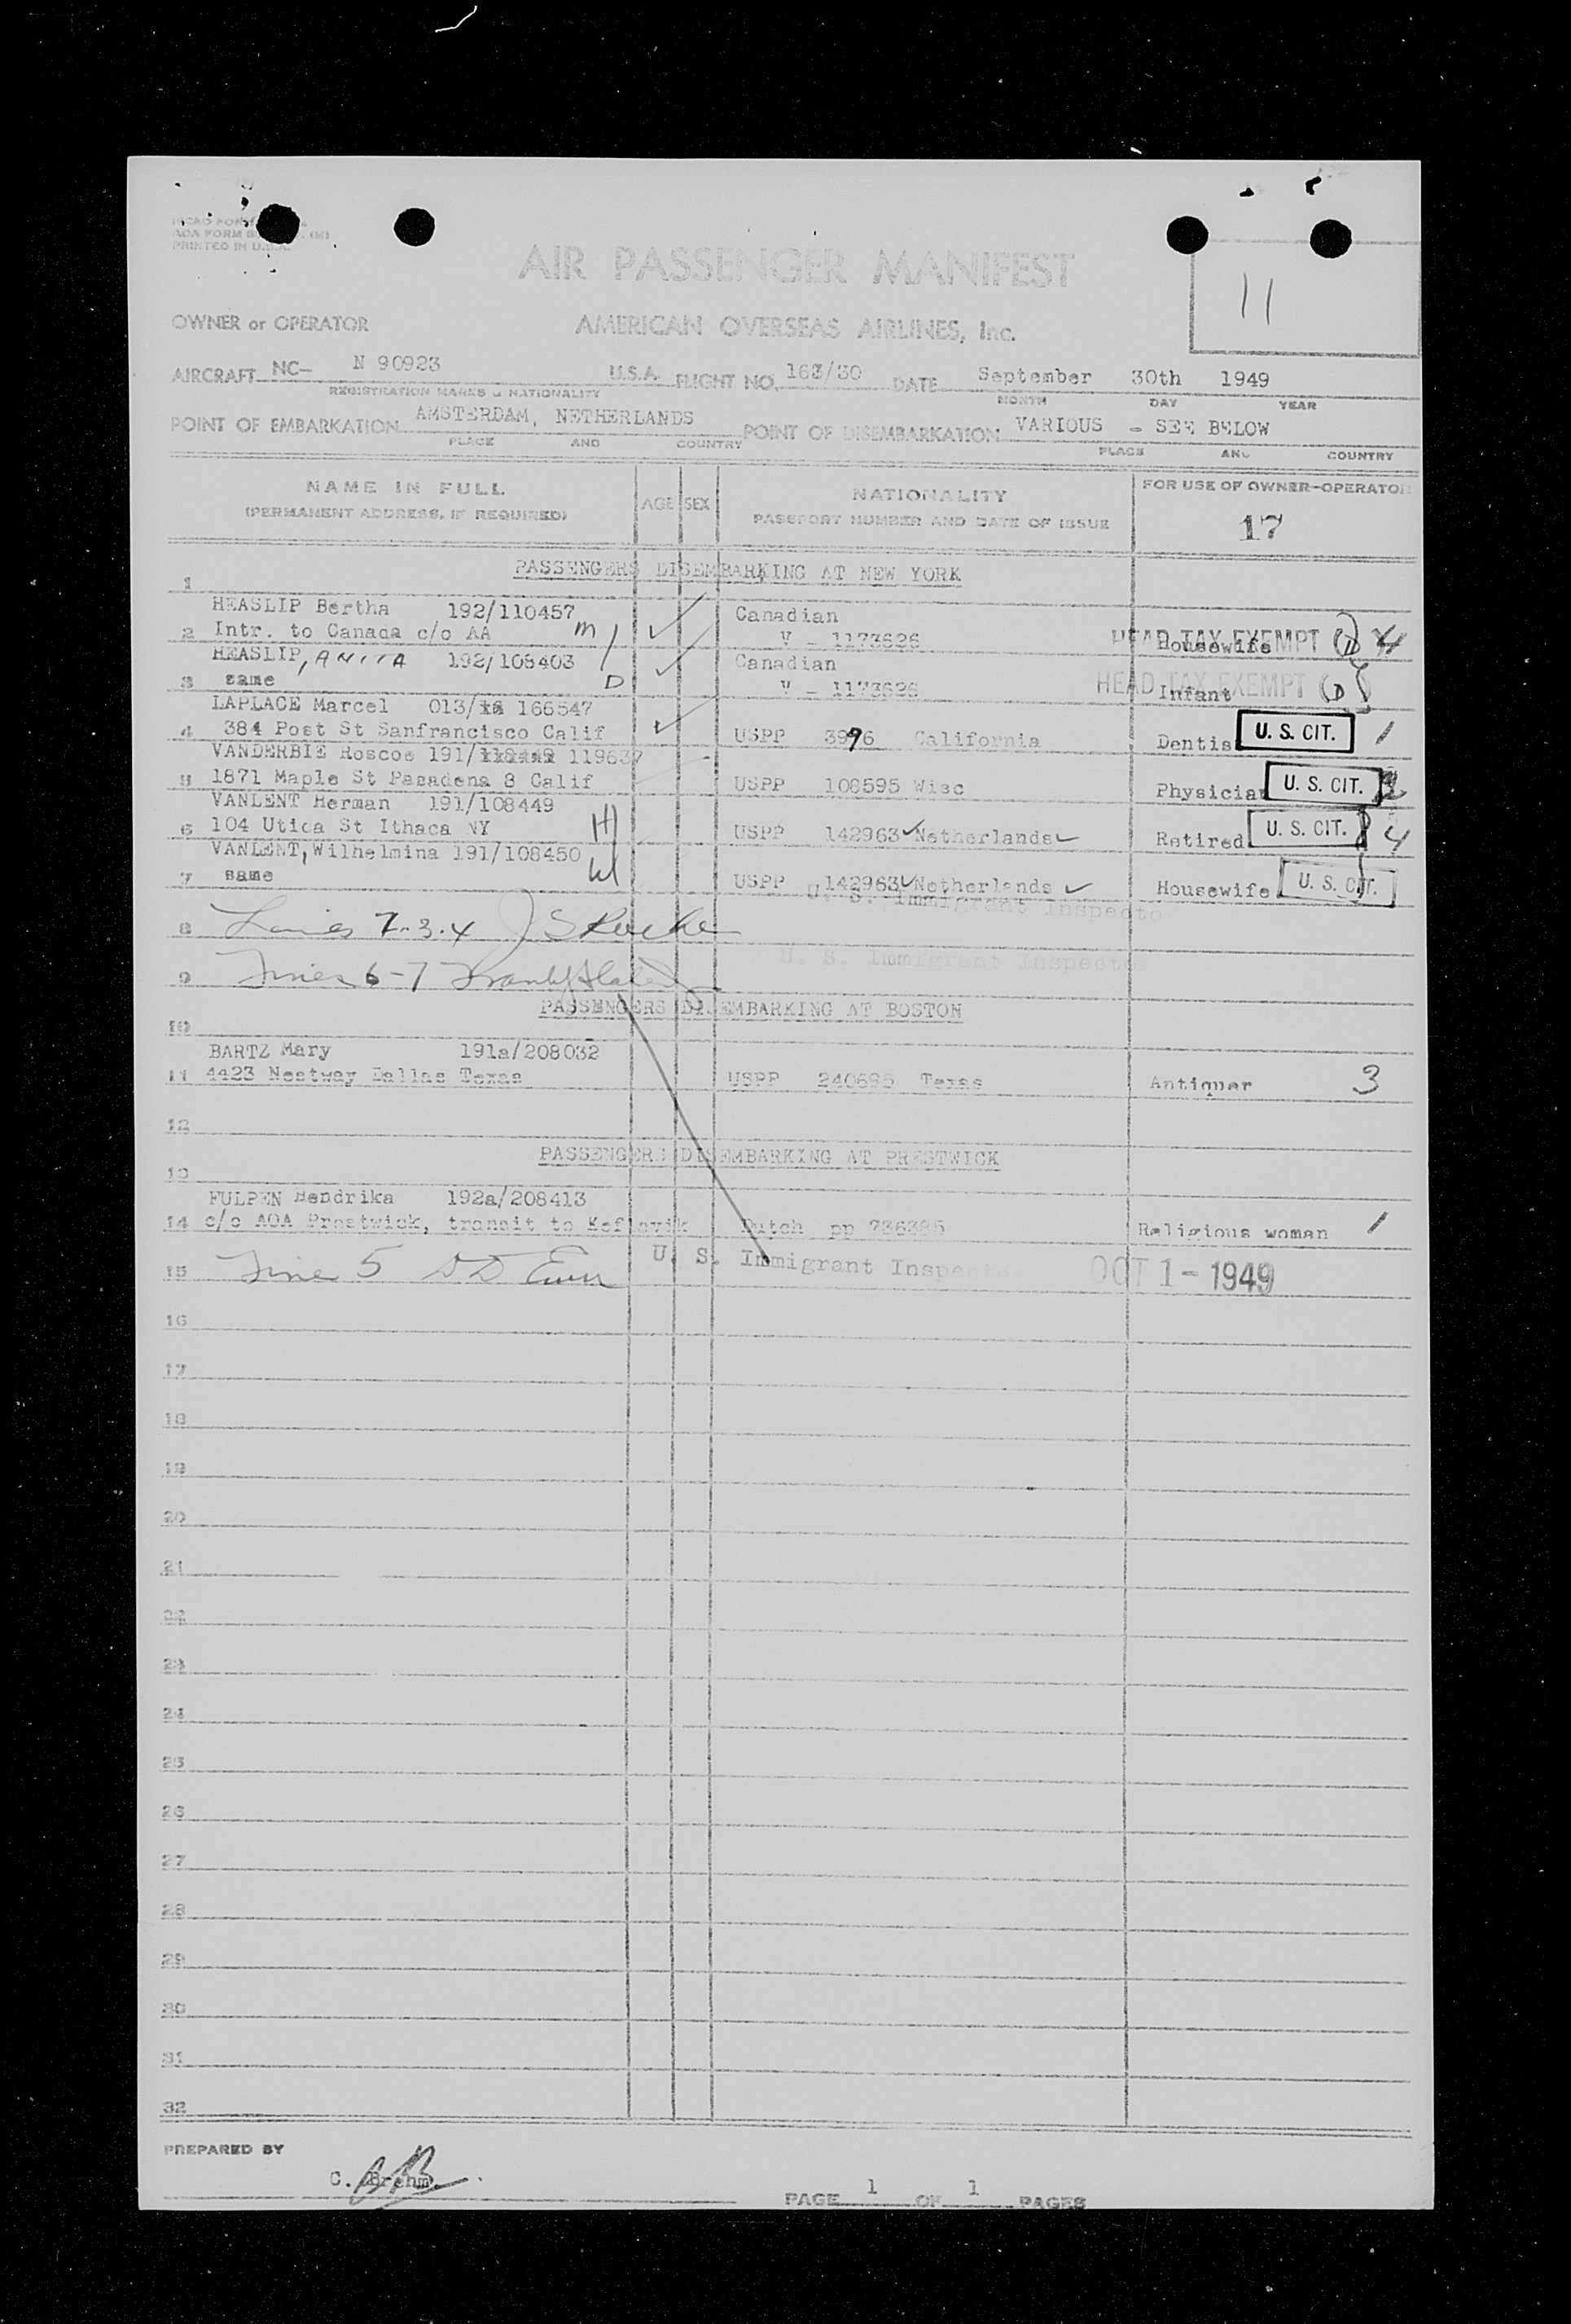 PRINTED IN U.S.A.
AIR PASSENGER MANIFEST
11
OWNER or OPERATOR AMERICAN OVERSEAS AIRLINES, Inc.
AIRCRAFT NC- N 90923 U.S.A. FLIGHT NO. 163/30 DATE September 30th 1949
REGISTRATION MARKS & NATIONALITY MONTH DAY YEAR
POINT OF EMBARKATION AMSTERDAM, NETHERLANDS POINT OF DISEMBARKATION VARIOUS - SEE BELOW
PLACE AND COUNTRY PLACE AND COUNTRY
NAME IN FULL AGE SEX NATIONALITY FOR USE OF OWNER-OPERATOR
(PERMANENT ADDRESS, IF REQUIRED) PASSPORT NUMBER AND DATE OF ISSUE 17
1 PASSENGERS DISEMBARKING AT NEW YORK
HEASLIP Bertha 192/110457 Canadian
2 Intr. to Canada c/o AA M V - 1173626 HEAD TAX EXEMPT Housewife
HEASLIP, ANITA 192/108403 Canadian
3 same D V - 1173626 HEAD TAX EXEMPT Infant (D)
LAPLACE Marcel 013/ 166547
4 384 Post St Sanfrancisco Calif USPP 3996 California Dentis U. S. CIT. 1
VANDERBIE Roscoe 191/ 119637
5 1871 Maple St Pasadena 8 Calif USPP 108595 Wisc Physician U. S. CIT.
VANLENT Herman 191/108449
6 104 Utica St Ithaca NY H USPP 142963 Netherlands Retired U. S. CIT. 4
VANLENT, Wilhelmina 191/108450
7 same W USPP 142963 Netherlands Housewife U. S. CIT.
U. S. Immigrant Inspector
8 Lines 2-3-4
U. S. Immigrant Inspector
9 Lines 6-7
PASSENGERS DISEMBARKING AT BOSTON
10
BARTZ Mary 191a/208032
11 4423 Westway Dallas Texas USPP 240695 Texas Antiquer 3
12
PASSENGERS DISEMBARKING AT PRESTWICK
13
FULPEN Hendrika 192a/208413
14 c/o AOA Prestwick, transit to Keflavik Dutch pp 736385 Religious woman 1
15 Line 5 U. S. Immigrant Inspector OCT 1 - 1949
16
17
18
19
20
21
22
23
24
25
26
27
28
29
30
31
32
PREPARED BY
C. Brehm.
PAGE 1 OF 1 PAGES